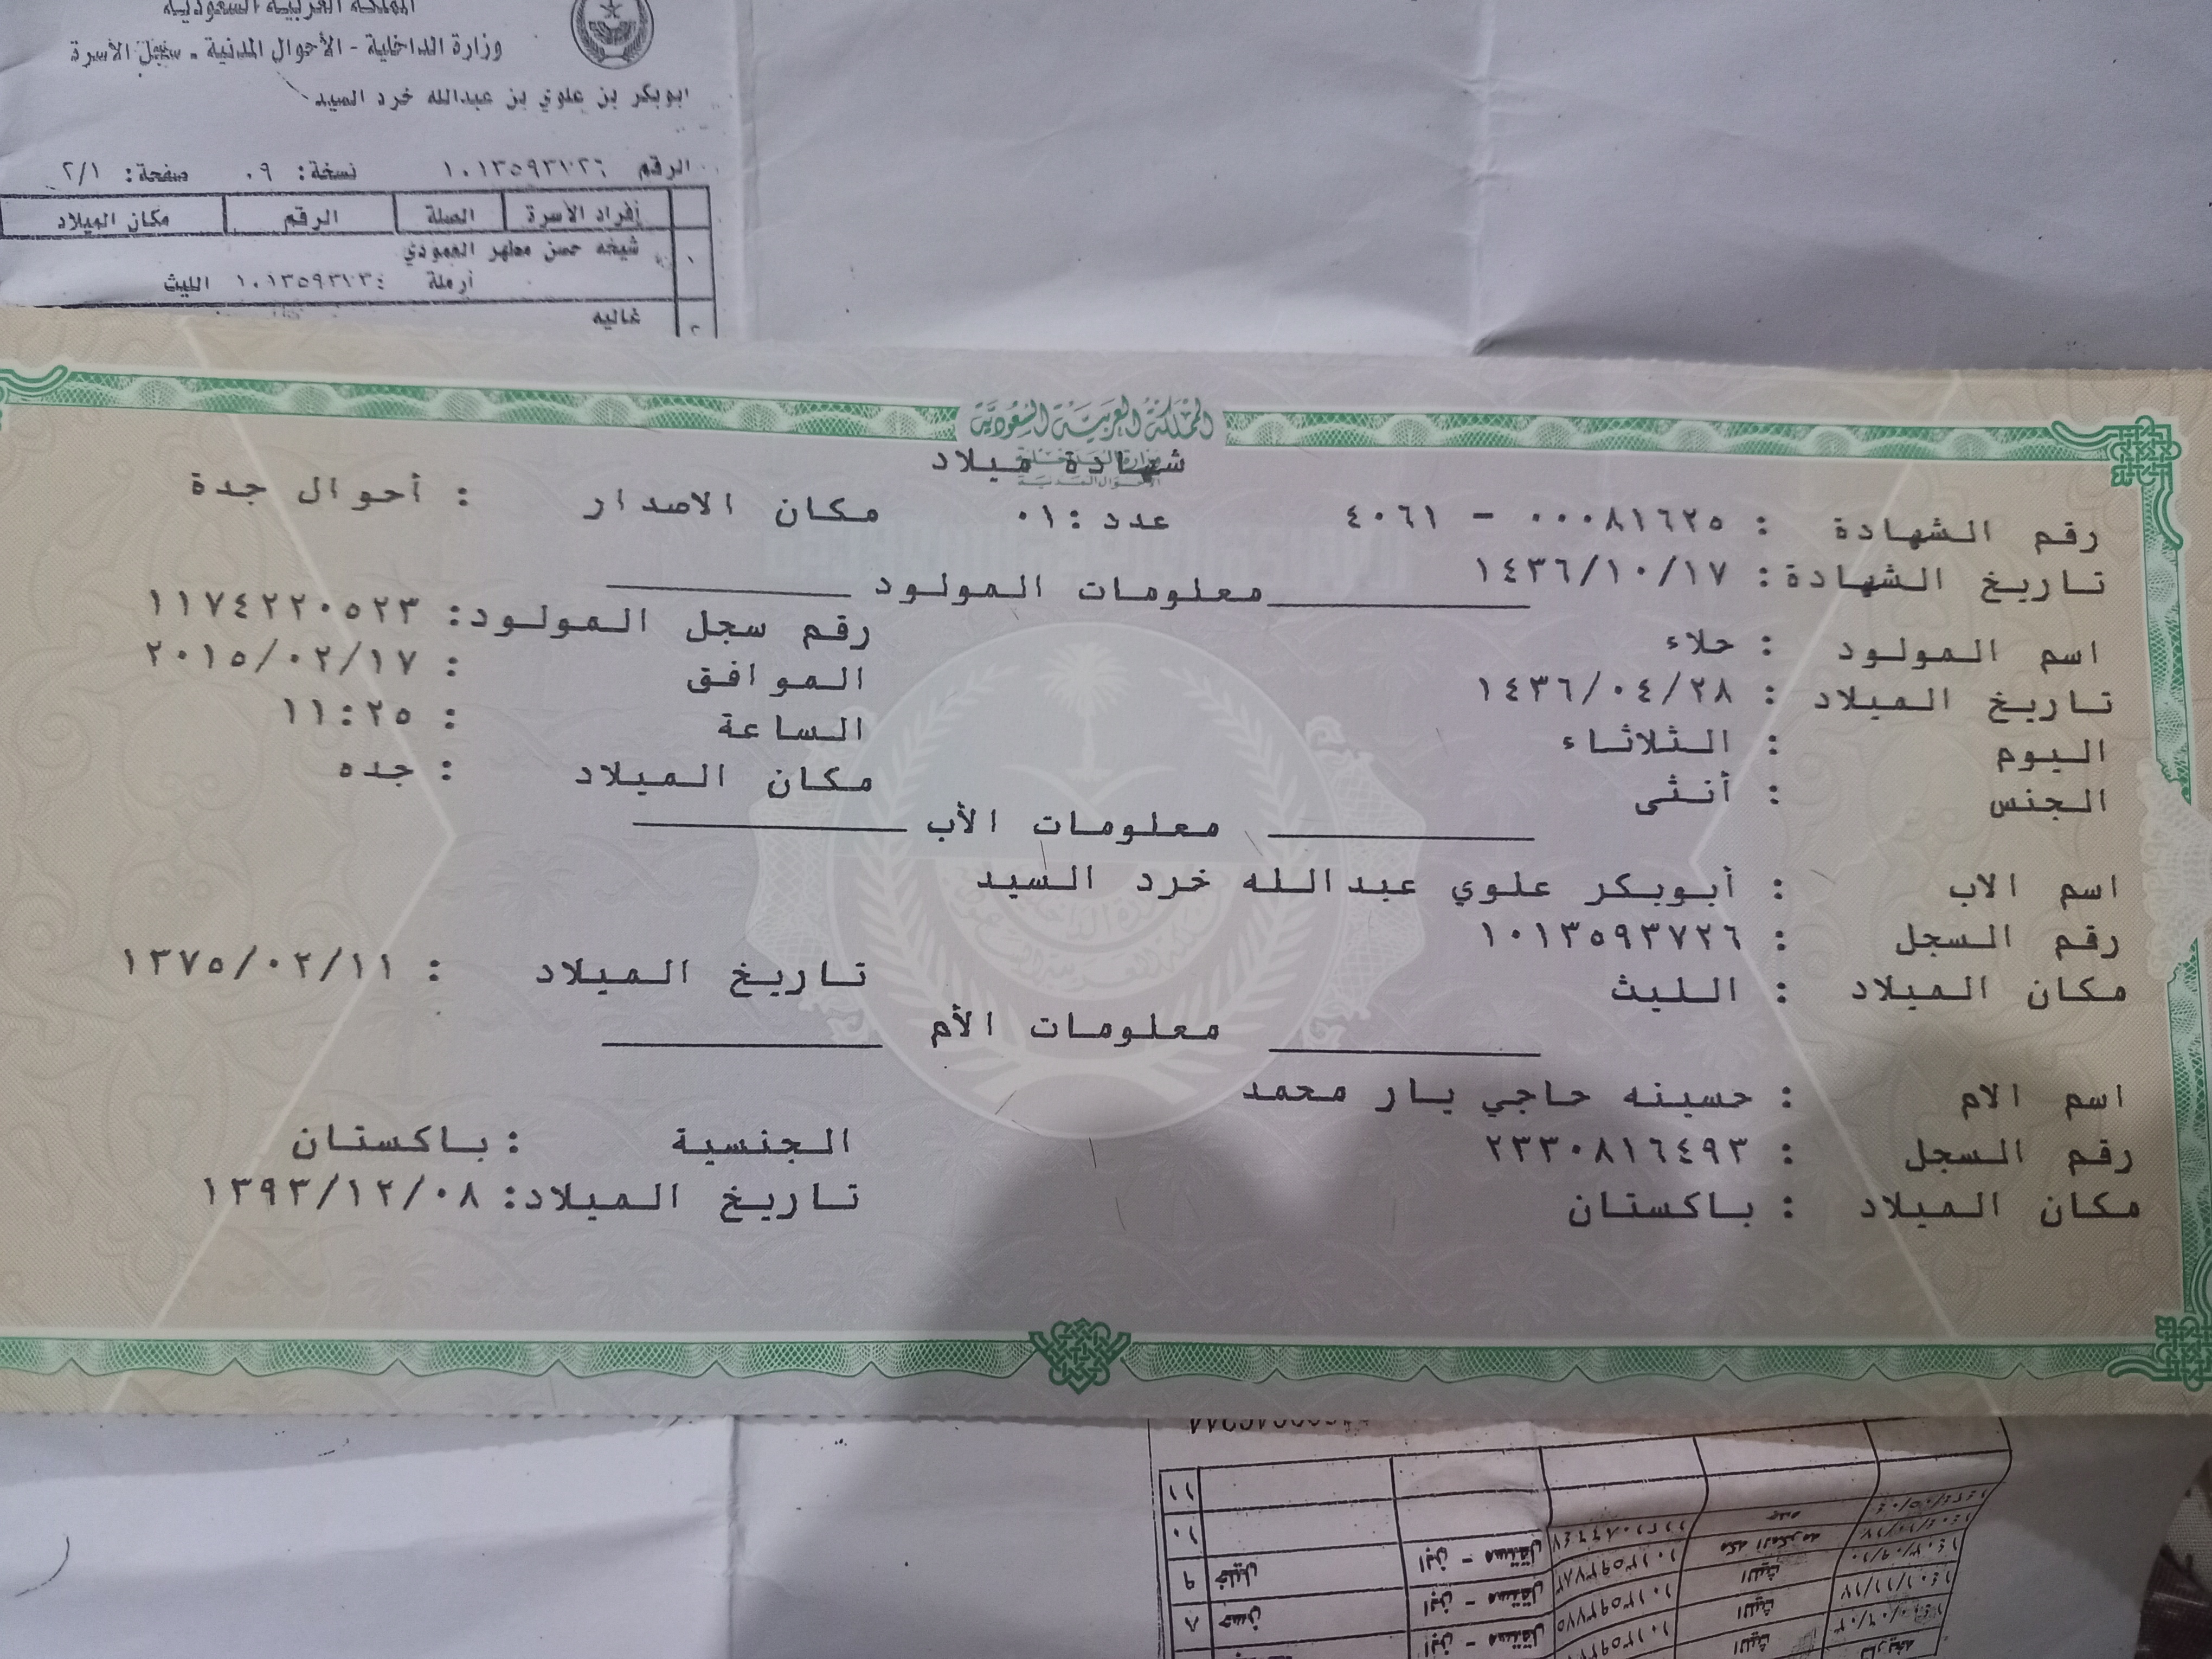 المملكة العربية السعودية
وزارة الداخلية - الأحوال المدنية - سجل الأسرة
ابوبكر بن علوي بن عبدالله خرد السيد
الرقم ١٠١٣٥٩٣٧٢٦ نسخة: ٠٩ صفحة: ٢/١
أفراد الأسرة الصلة الرقم مكان الميلاد
١ شيخه حسن مطهر العمودي
أرملة ١٠١٣٥٩٣٧٣٤ الليث
٢ غاليه
المملكة العربية السعودية
وزارة الداخلية
الأحوال المدنية
شهادة ميلاد
رقم الشهادة : ٠٠٠٨١٦٢٥ - ٤٠٦١ عدد :٠١ مكان الاصدار : أحوال جدة
تاريخ الشهادة: ١٤٣٦/١٠/١٧
معلومات المولود
اسم المولود : حلاء رقم سجل المولود: ١١٧٤٢٢٠٥٢٣
تاريخ الميلاد : ١٤٣٦/٠٤/٢٨ الموافق : ٢٠١٥/٠٢/١٧
اليوم : الثلاثاء الساعة : ١١:٢٥
الجنس : أنثى مكان الميلاد : جده
معلومات الأب
اسم الاب : أبوبكر علوي عبدالله خرد السيد
رقم السجل : ١٠١٣٥٩٣٧٢٦
مكان الميلاد : الليث تاريخ الميلاد : ١٣٧٥/٠٢/١١
معلومات الأم
اسم الام : حسينه حاجي يار محمد
رقم السجل : ٢٣٣٠٨١٦٤٩٣ الجنسية : باكستان
مكان الميلاد : باكستان تاريخ الميلاد: ١٣٩٣/١٢/٠٨
١١
١٠
٩ خليل ابن - مستقل جده
٨ حسن ابن - مستقل ١٠١٣٥٩٣٧٨٣ مكه المكرمه
ابن - مستقل ١٠١٣٥٩٣٧٧٥ الليث
الليث